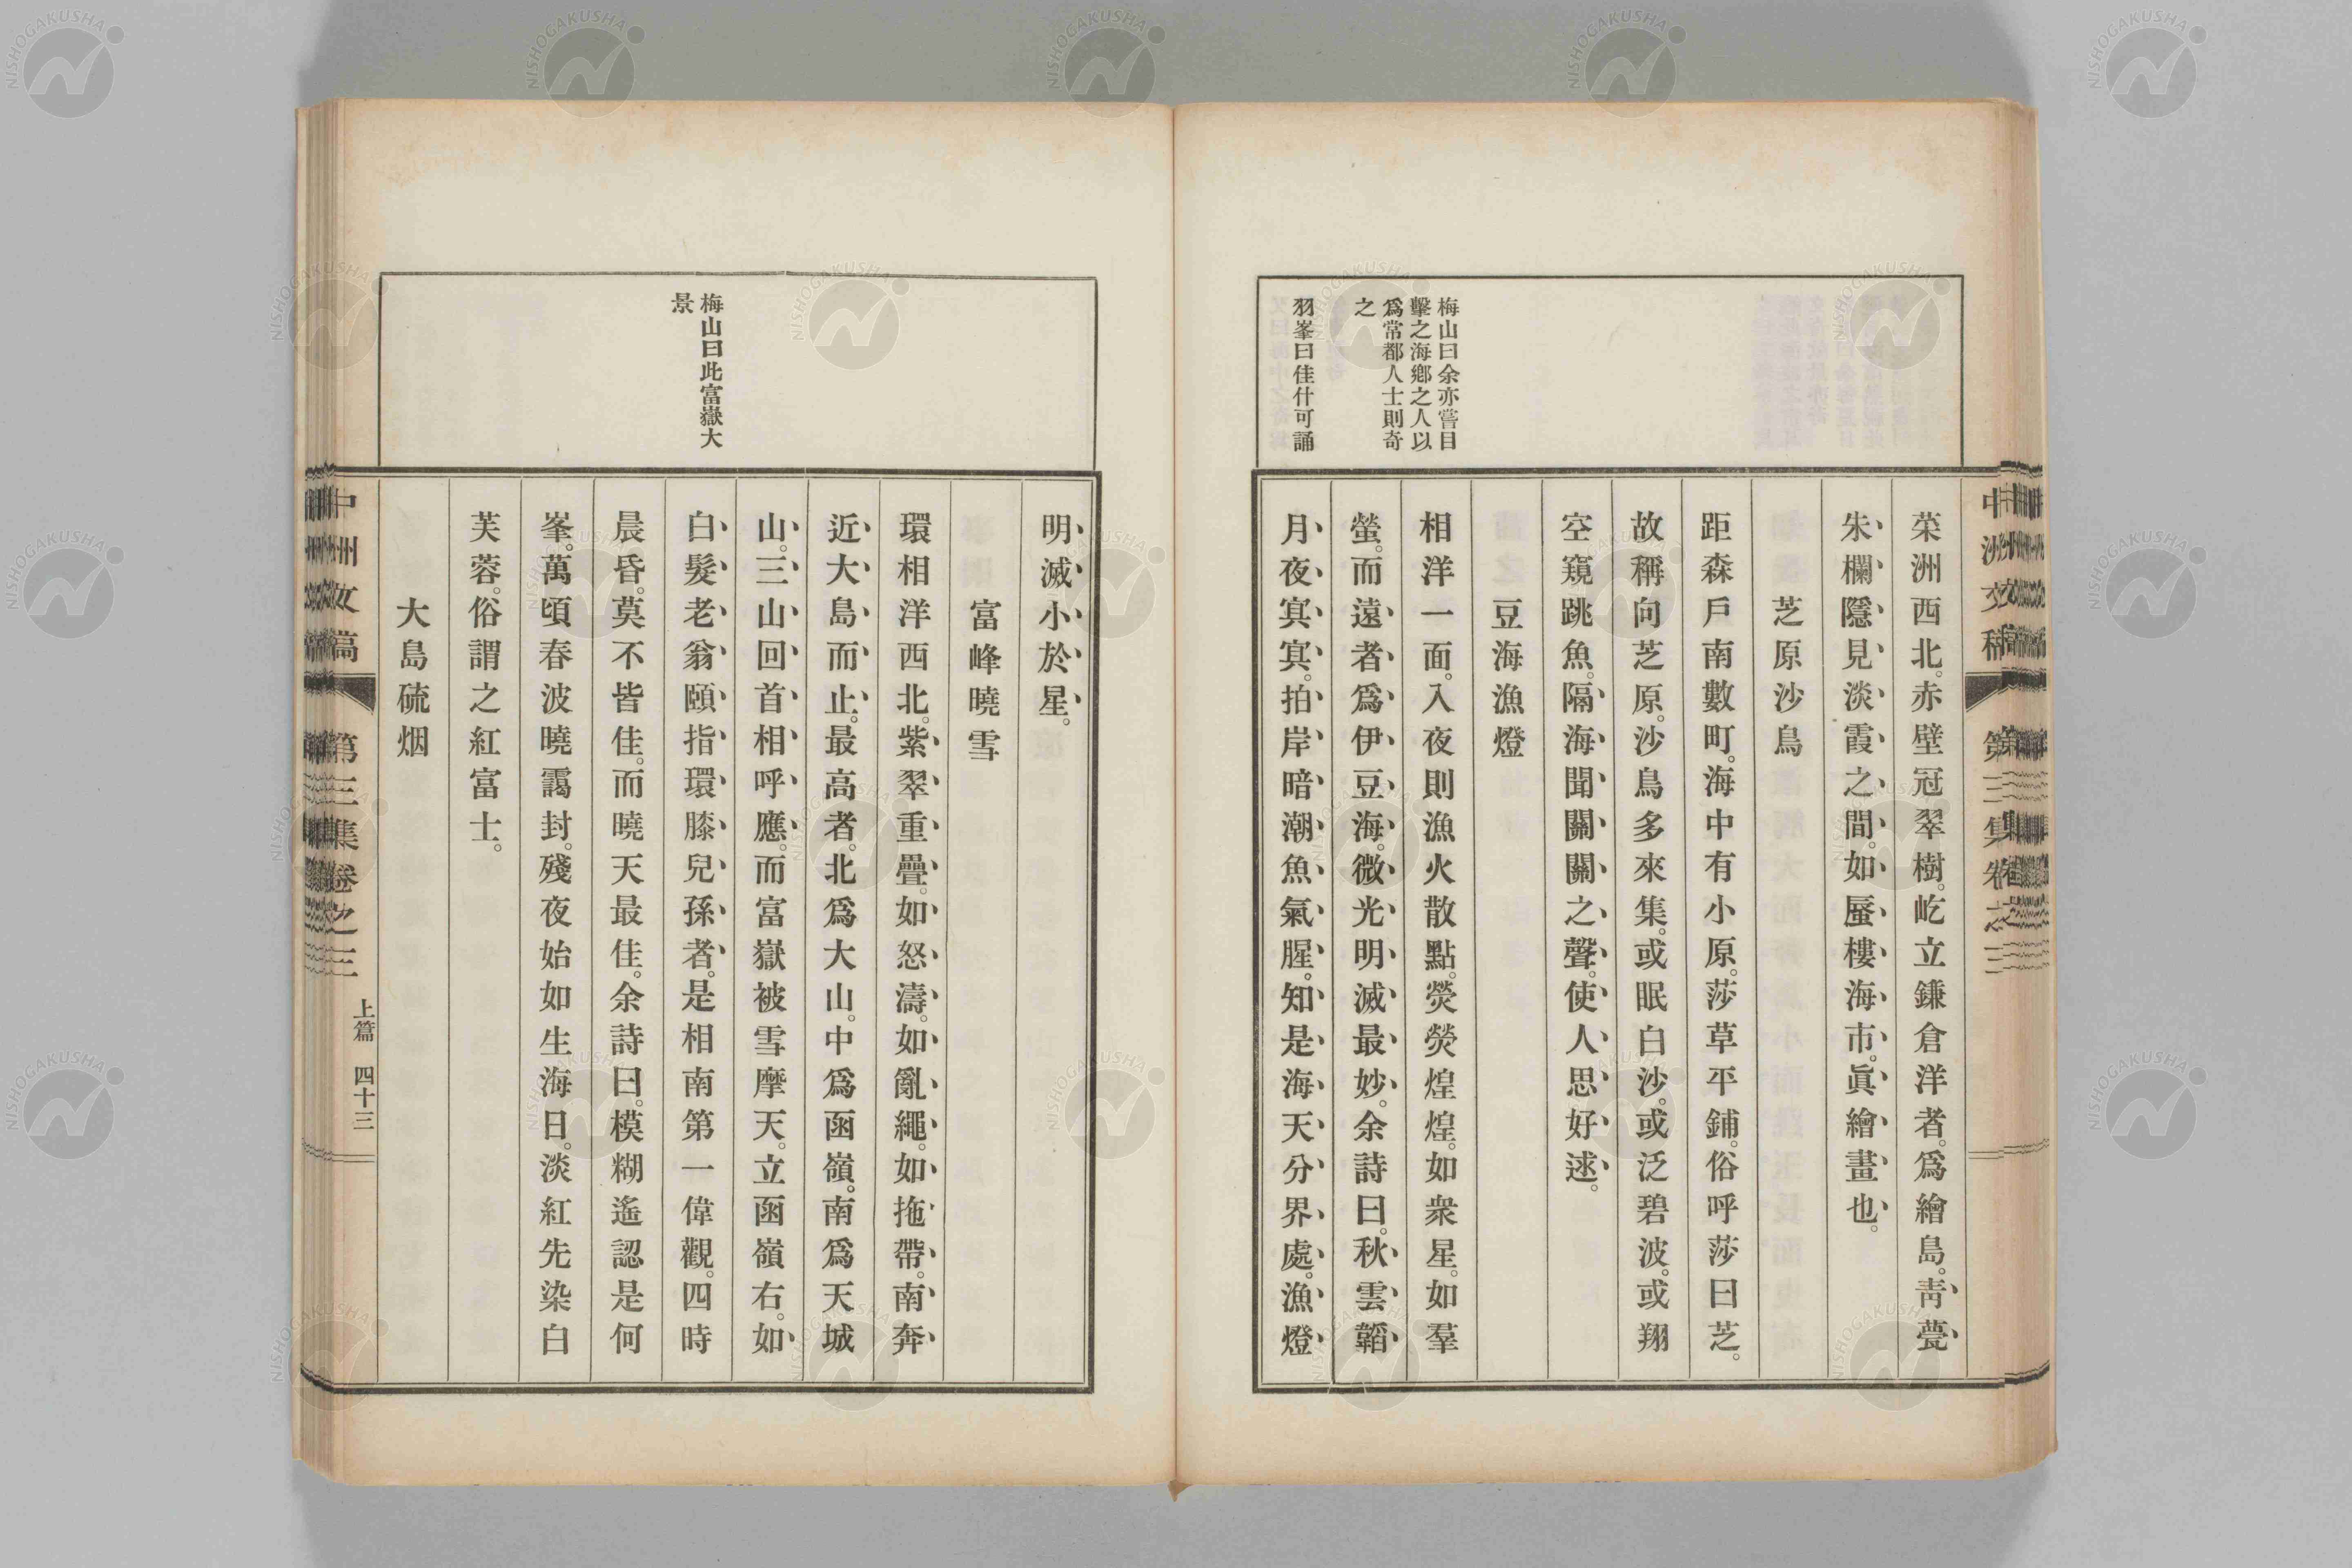 中洲文稿 第三集卷之三
梅山曰余亦嘗目
擊之海鄉之人以
爲常都人士則奇
之
羽峯曰佳什可誦
菜洲西北。赤壁冠翠樹。屹立鎌倉洋者。爲繪島。靑甍
朱欄。隱見淡霞之間。如蜃樓海市。眞繪畫也。
芝原沙鳥
距森戶南數町。海中有小原。莎草平鋪。俗呼莎曰芝。
故稱向芝原。沙鳥多來集。或眠白沙。或泛碧波。或翔
空窺跳魚。隔海聞關關之聲。使人思好逑。
豆海漁燈
相洋一面。入夜則漁火散點。熒熒煌煌。如衆星。如羣
螢。而遠者爲伊豆海。微光明滅最妙。余詩曰。秋雲韜
月夜冥冥。拍岸暗潮魚氣腥。知是海天分界處。漁燈
梅山曰此富嶽大
景
明滅小於星。
富峰曉雪
環相洋西北。紫翠重疊。如怒濤。如亂繩。如拖帶。南奔
近大島而止。最高者。北爲大山。中爲函嶺。南爲天城
山。三山回首相呼應。而富嶽被雪摩天。立函嶺右。如
白髮老翁頤指環膝兒孫者。是相南第一偉觀。四時
晨昏。莫不皆佳。而曉天最佳。余詩曰。模糊遙認是何
峯。萬頃春波曉靄封。殘夜始如生海日。淡紅先染白
芙蓉。俗謂之紅富士。
大島硫烟
中洲文稿 第三集卷之三 上篇 四十三
NISHOGAKUSHA